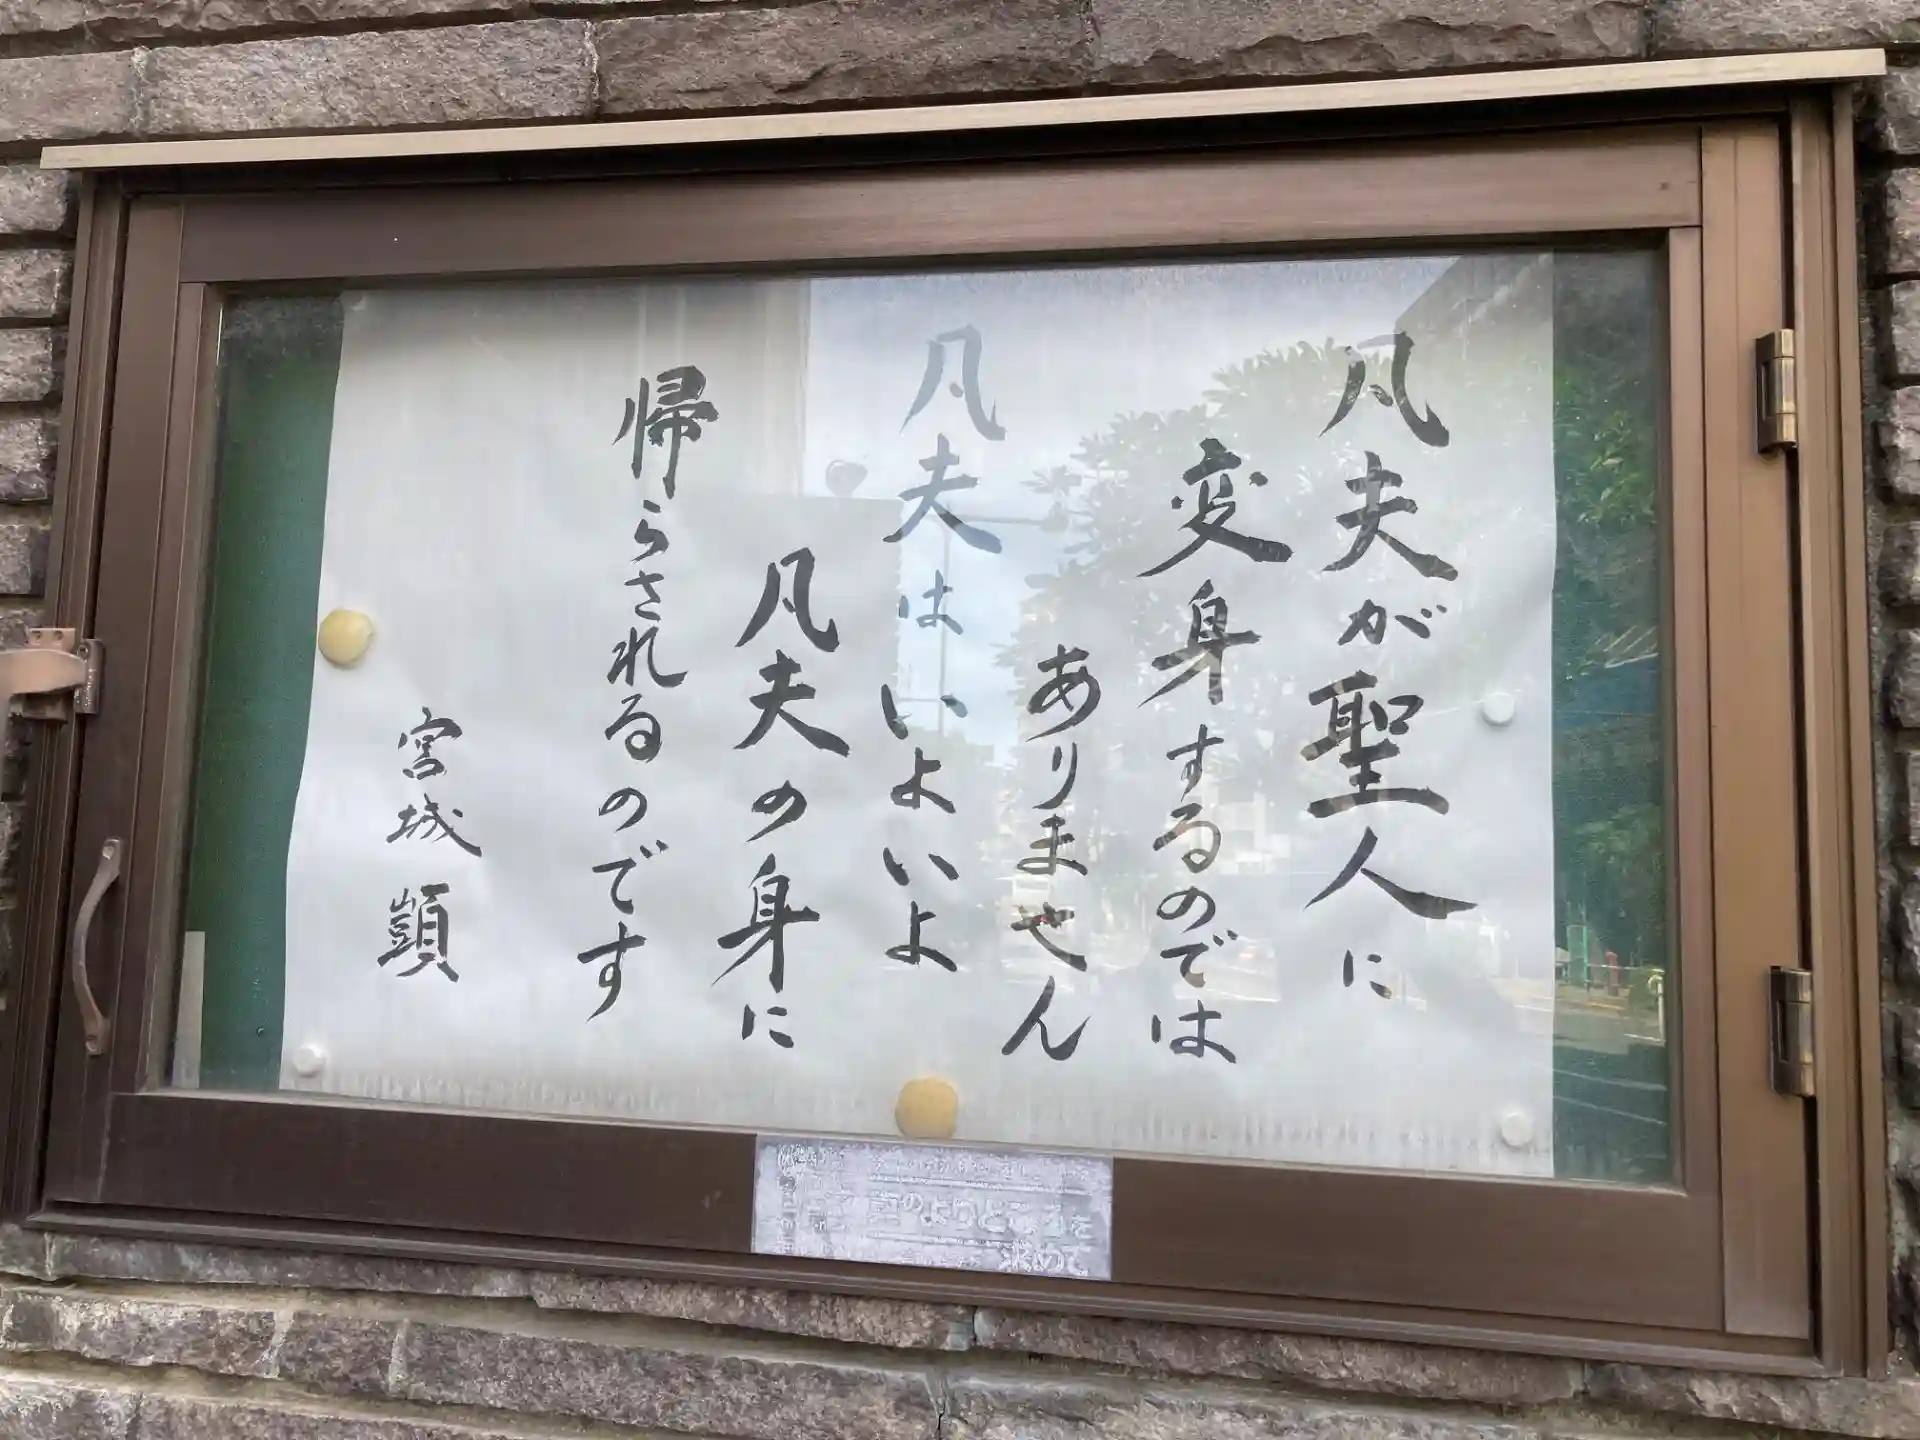 凡夫が聖人に
変身するのでは
ありません
凡夫はいよいよ
凡夫の身に
帰らされるのです
宮城 顗
のよりどころを
求めて